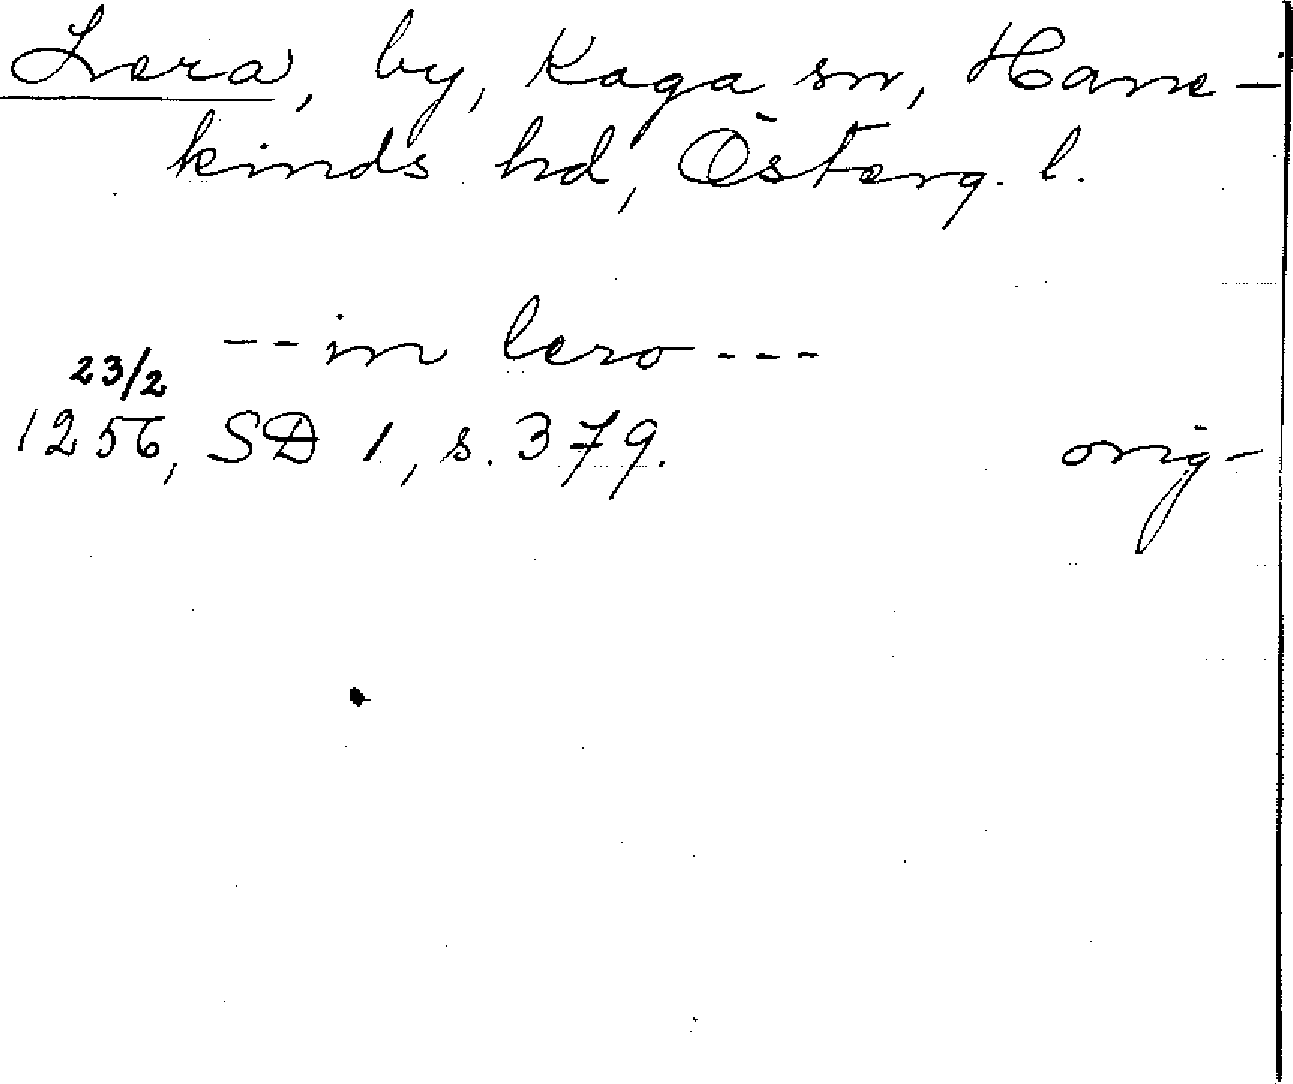 Lera, by, Kaga sn, Hane-
kinds hd, Österg. l.
-- in lero ---
23/2
1256, SD 1, s. 379. orig-